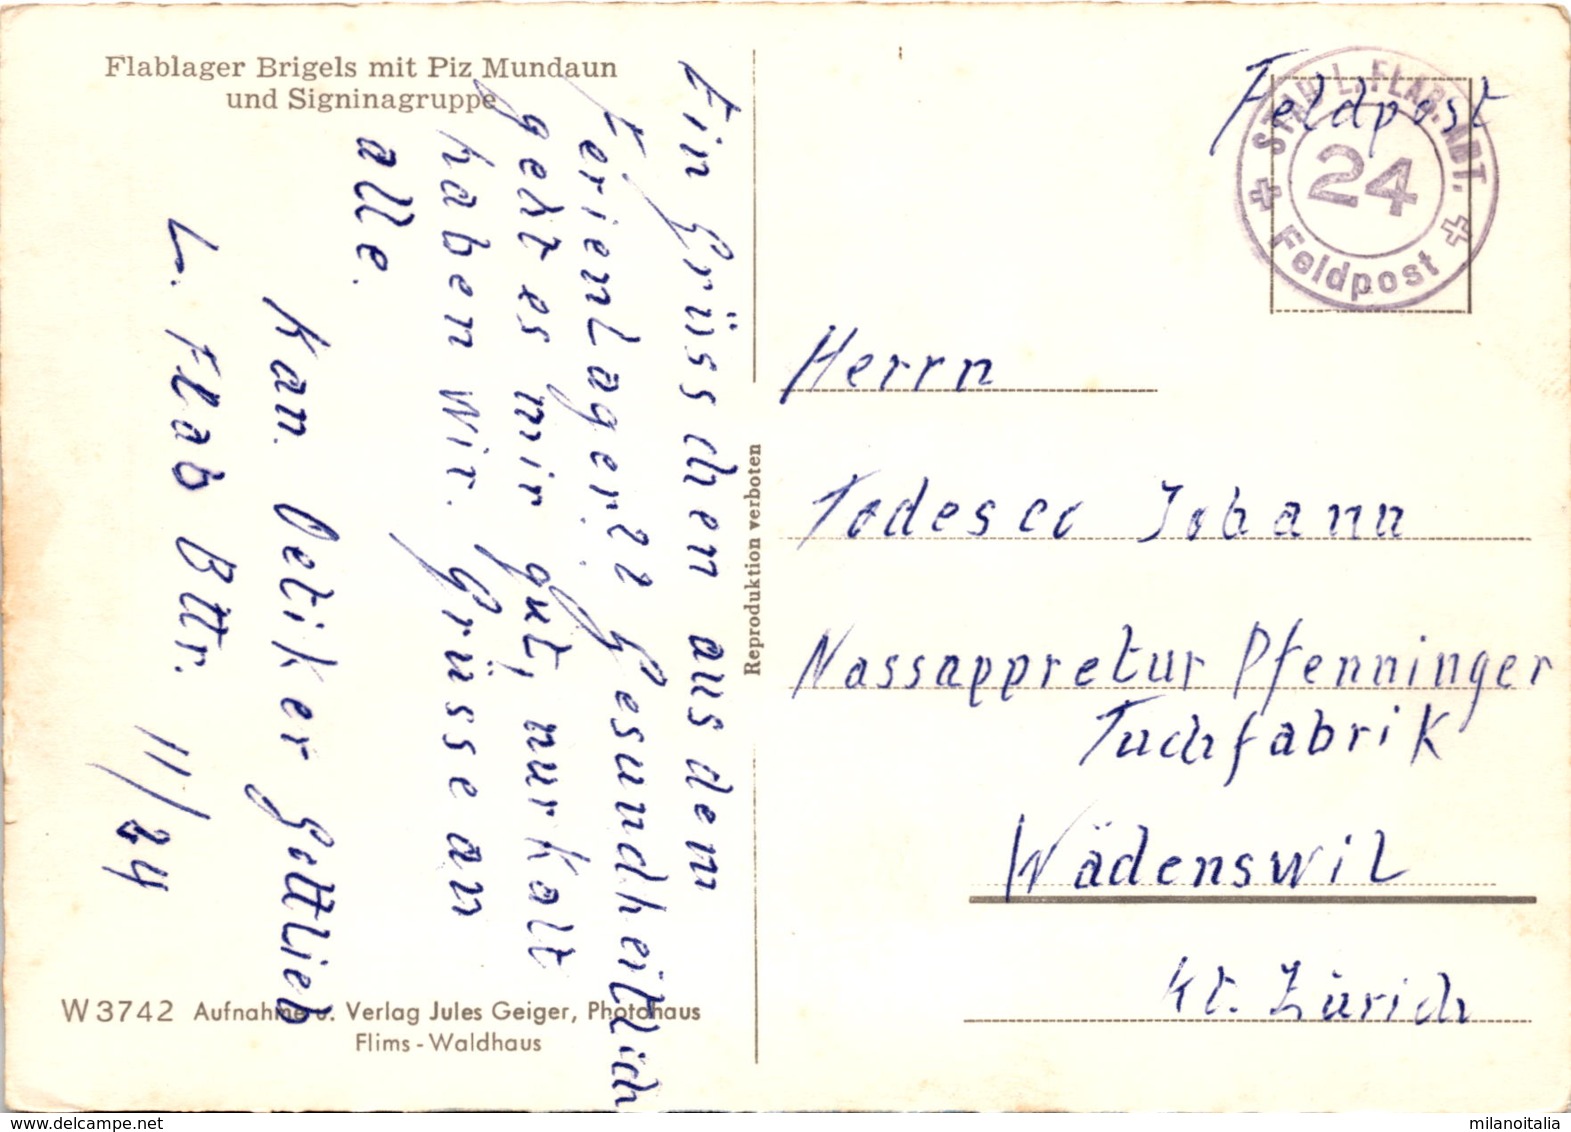 Flablager Brigels mit Piz Mundaun
und Signinagruppe
Ein Grüsschen aus dem
Ferienlager. Gesundheitlich
geht es mir gut, nur kalt
haben wir. Grüsse an
alle.
Kan. Oetiker Gottlieb
L. Flab Bttr. 11/24
W 3742 Aufnahme u. Verlag Jules Geiger, Photohaus
Flims - Waldhaus
Reproduktion verboten
Feldpost
STAB L. FLAB. ABT.
24
Feldpost
Herrn
Todesco Johann
Nassappretur Pfenninger
Tuchfabrik
Wädenswil
Kt. Zürich
milanoitalia